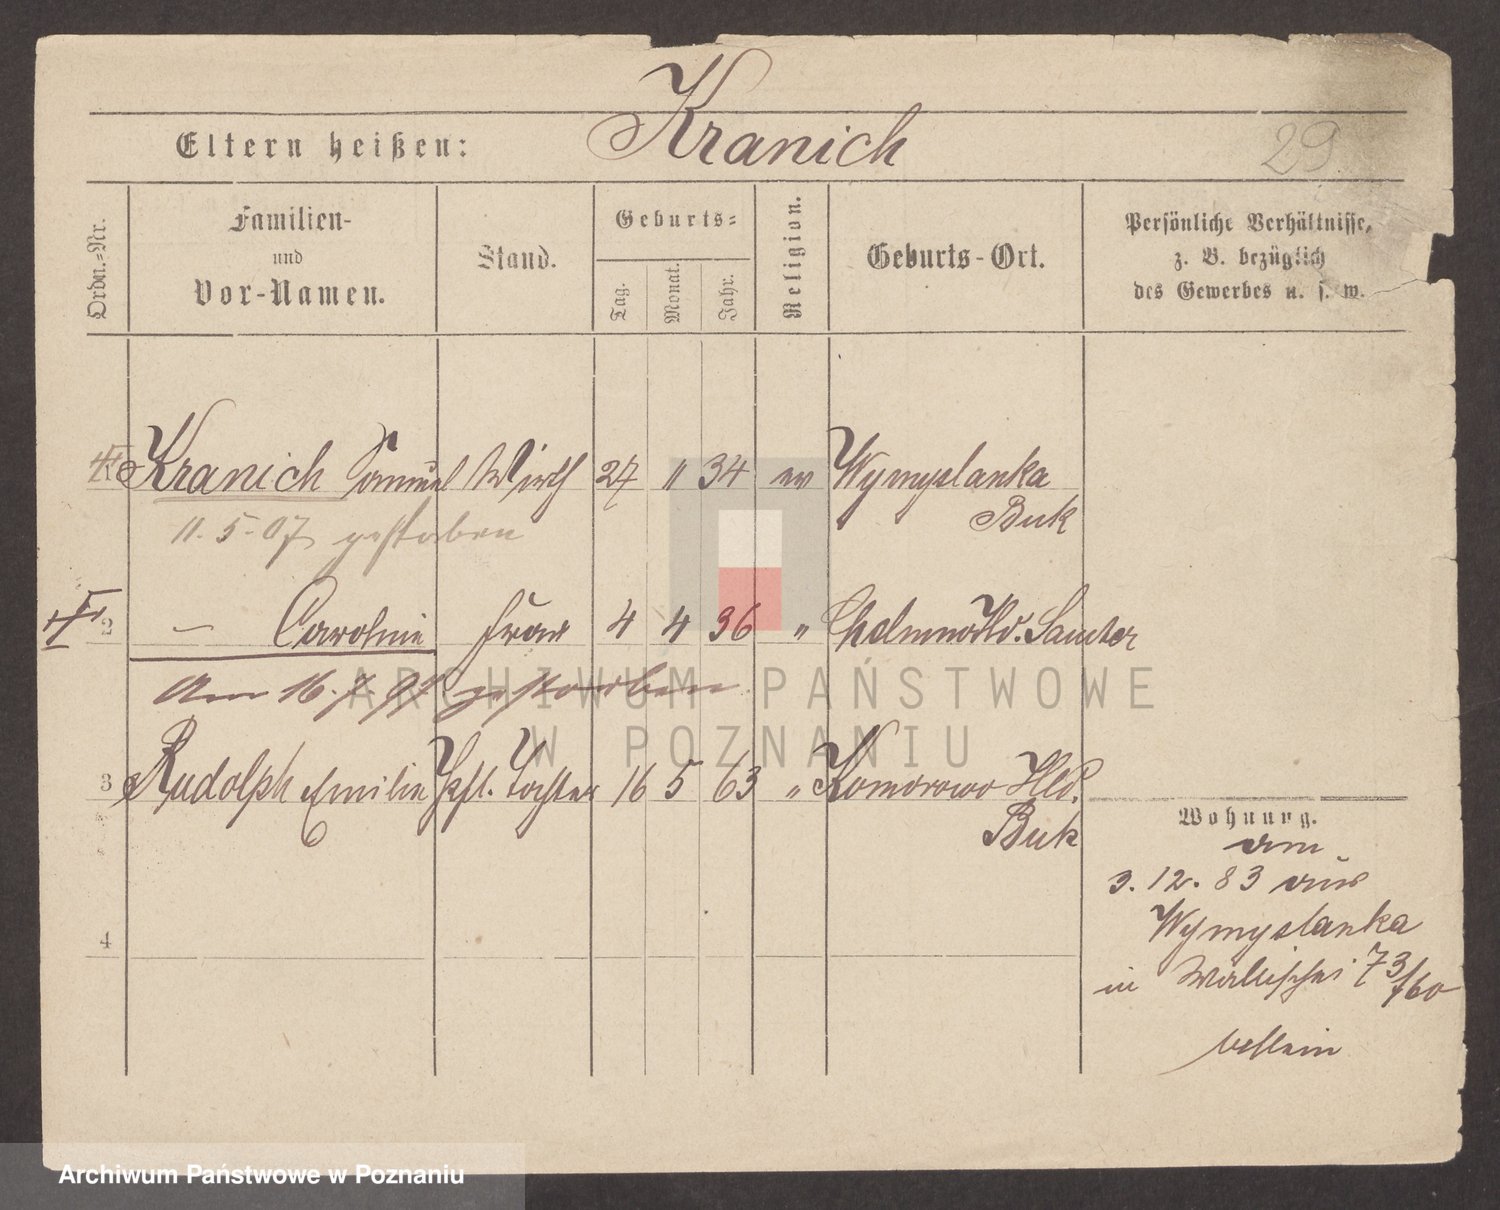 Kranich
Eltern heißen:
29
Ordn.-Nr.
Familien-
und
Vor-Namen.
Stand.
Geburts-
Tag.
Monat.
Jahr.
Religion.
Geburts-Ort.
Persönliche Verhältnisse,
z. B. bezüglich
des Gewerbes u. s. w.
Kranich Samuel Wirth 27 11 34 ev Wymyslanka
Buk
11.5.07 gestorben
2 — Caroline Frau 4 4 36 „ Samter
Am 16.7. gestorben
ARCHIWUM PAŃSTWOWE
W POZNANIU
3 Rudolph Emilie Tochter 16 5 63 „ Komorowo Hld.
Buk
Wohnung.
am
3.12.83 aus
Wymyslanka
in Wallischei 73/
4
Archiwum Państwowe w Poznaniu